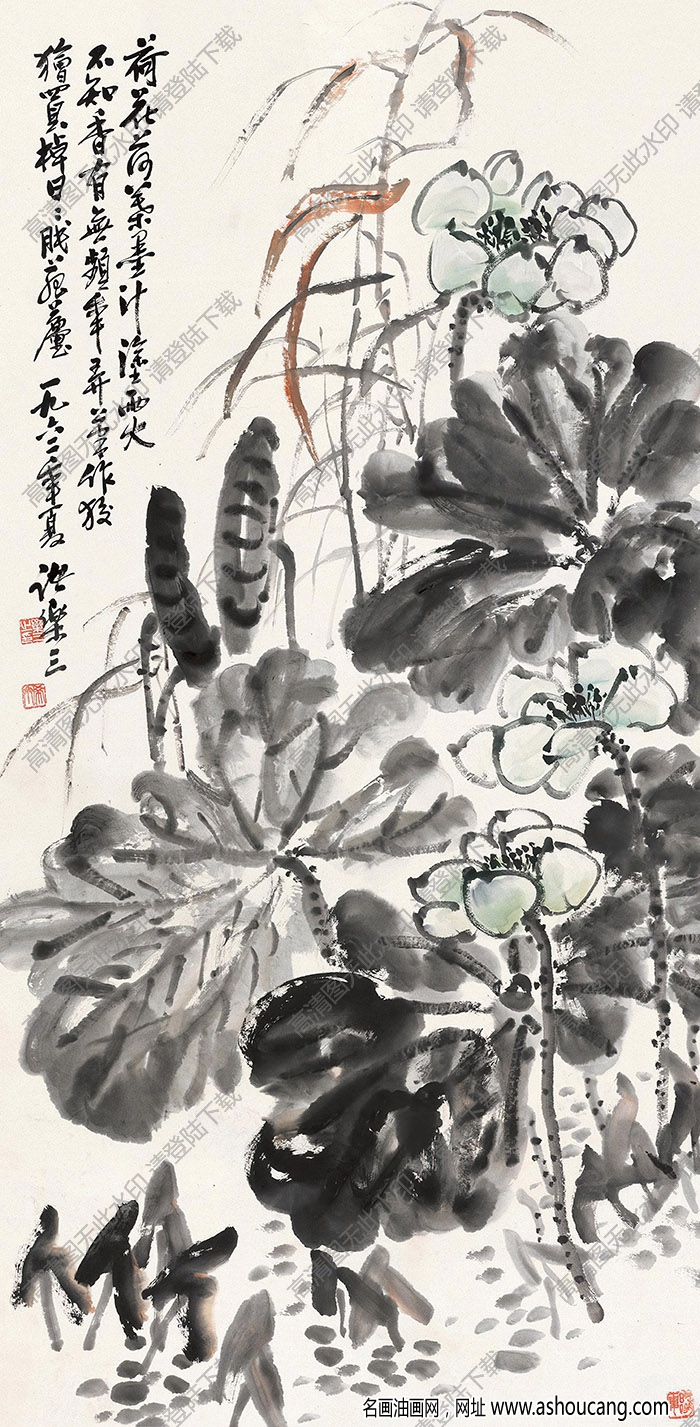 荷花荷葉墨汁塗雨大
不知香有無頻年弄筆作狡
獪買棹日〻眠菰蘆 一九六二年夏 諸樂三
高清图无此水印 请登陆下载
名画油画网，网址 www.ashoucang.com